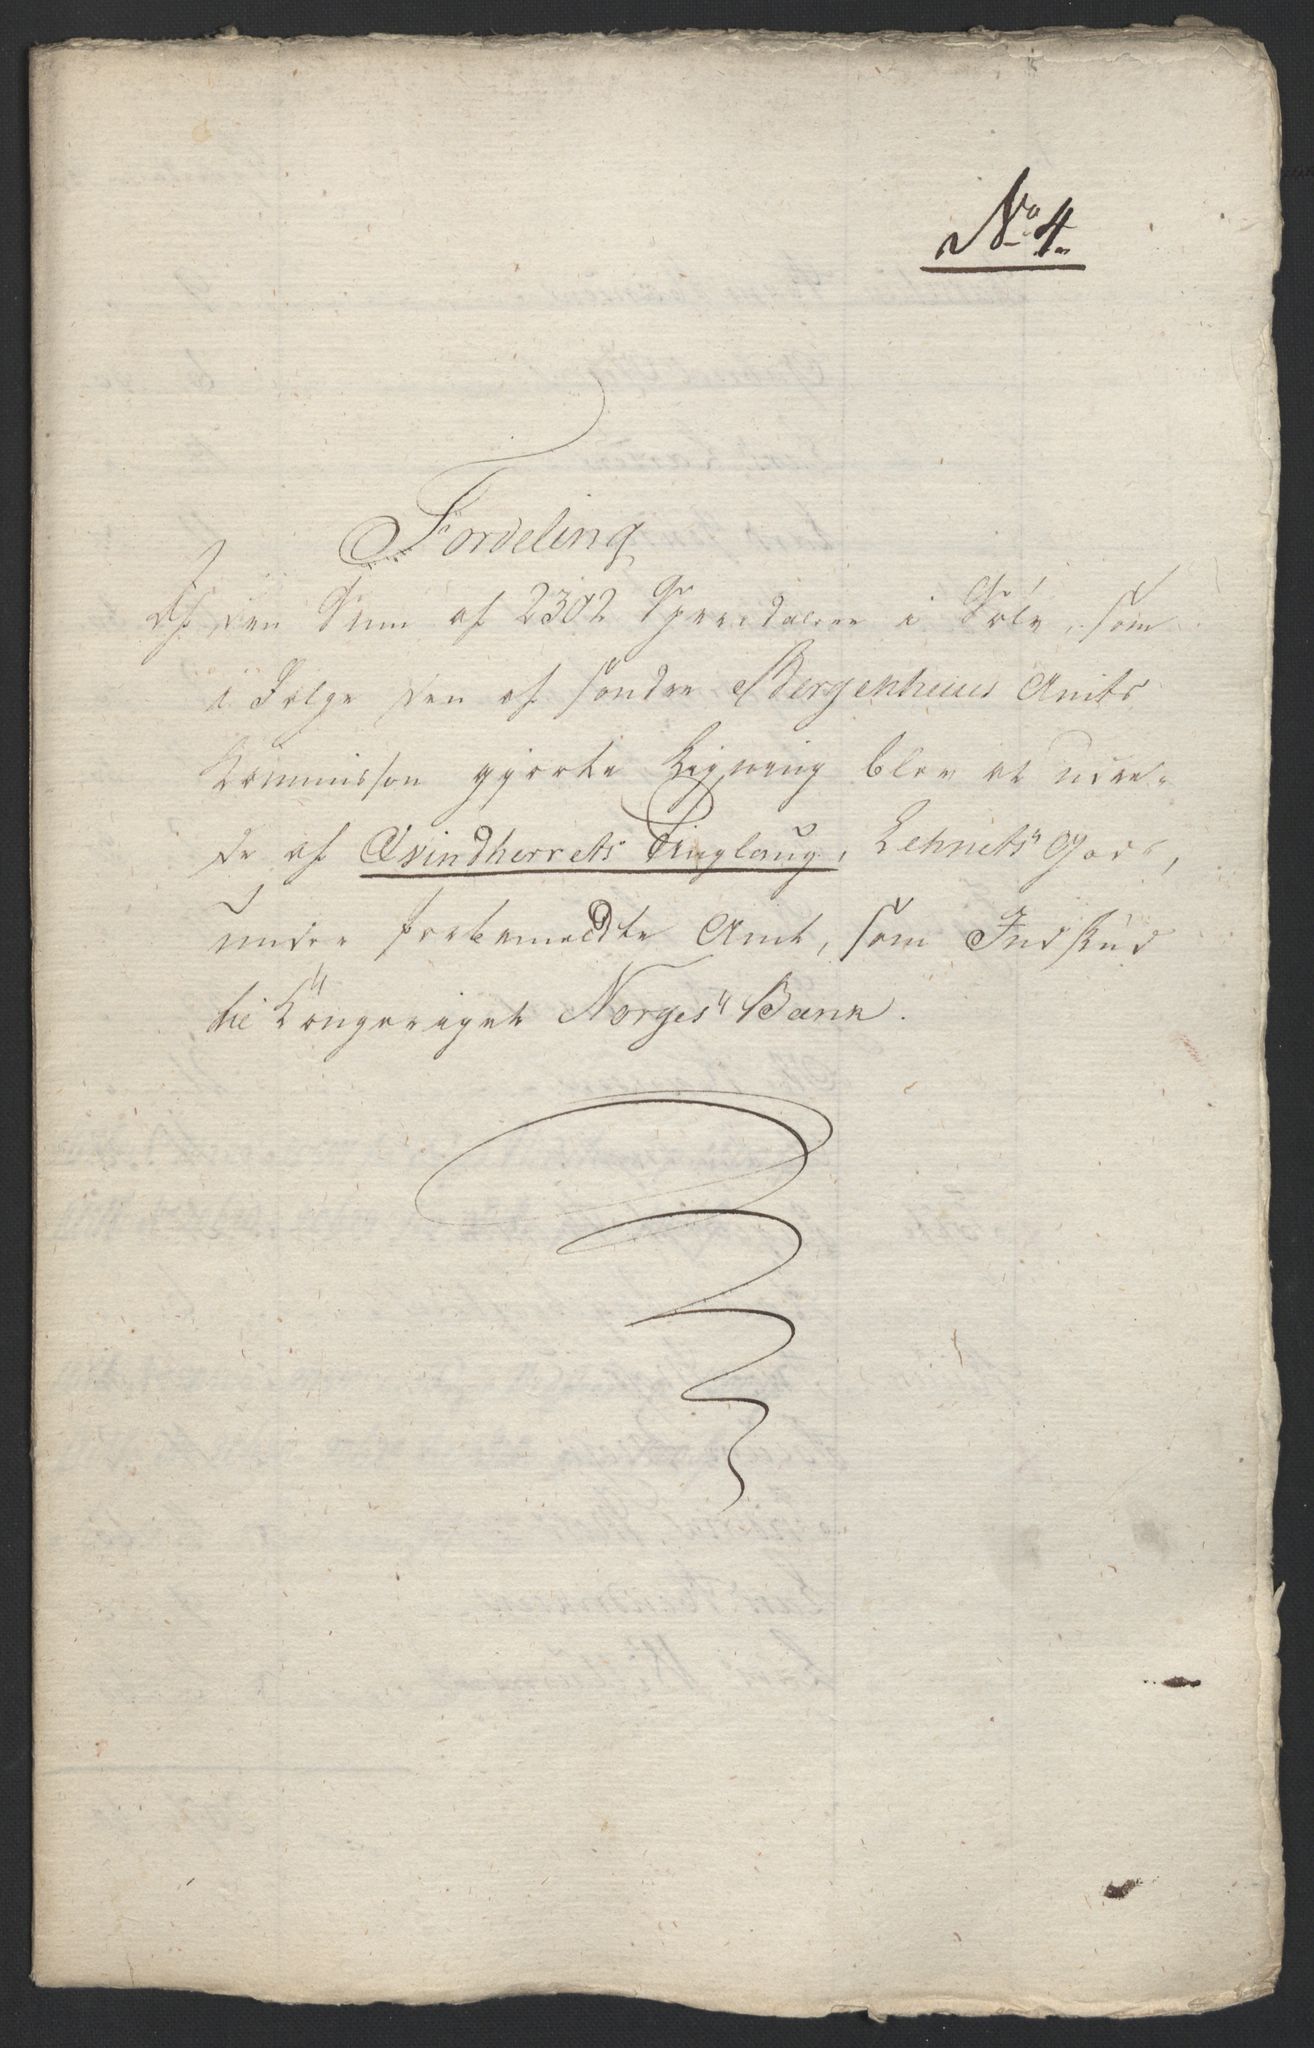 No 4.
Fordeling
Af den Sum af 2302 Speciedaler i Sølv, som
i Følge den af søndre Bergenhuus Amts
Kommisson gjorte Ligning blev at udre-
de af Qvindherrets Tinglaug, Lehnets Gods,
under forbemeldte Amt, som Indskud
til Kongeriget Norges Bank.